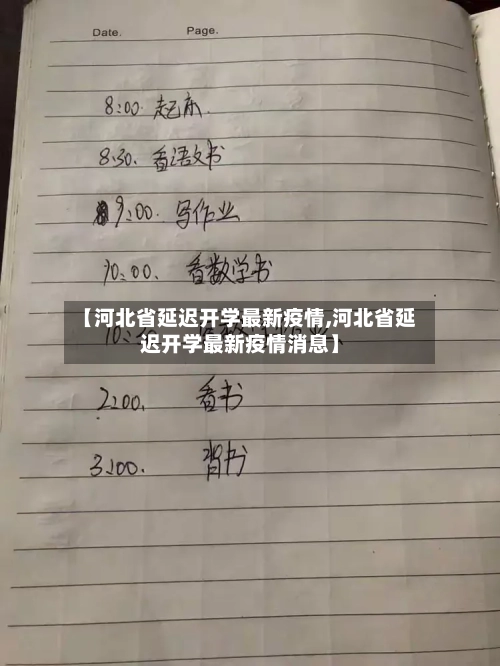 Date. Page.
8:00. 起床.
8:30. 看语文书
9:00. 写作业
10:00. 看数学书
【河北省延迟开学最新疫情,河北省延
迟开学最新疫情消息】
2:00. 看书
3:00. 背书